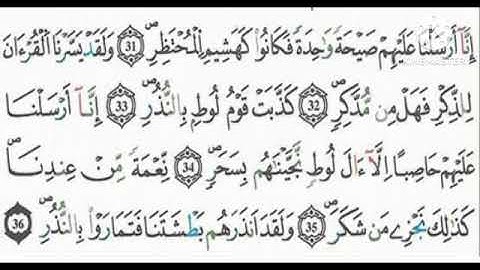 إِنَّآ أَرْسَلْنَا عَلَيْهِمْ صَيْحَةً وَٰحِدَةً فَكَانُوا۟ كَهَشِيمِ اِ۬لْمُحْتَظِرِۖ (31) وَلَقَدْ يَسَّرْنَا اَ۬لْقُرْءَانَ
لِلذِّكْرِ فَهَلْ مِن مُّدَّكِرٍۖ (32) كَذَّبَتْ قَوْمُ لُوطِۢ بِالنُّذُرِۖ (33) إِنَّآ أَرْسَلْنَا
عَلَيْهِمْ حَاصِبًا اِلَّآ ءَالَ لُوطٍ نَّجَّيْنَٰهُم بِسَحَرٍۖ (34) نِّعْمَةً مِّنْ عِندِنَاۖ
كَذَٰلِكَ نَجْزِے مَن شَكَرَۖ (35) وَلَقَدَ اَنذَرَهُم بَطْشَتَنَا فَتَمَارَوْا۟ بِالنُّذُرِۖ (36)